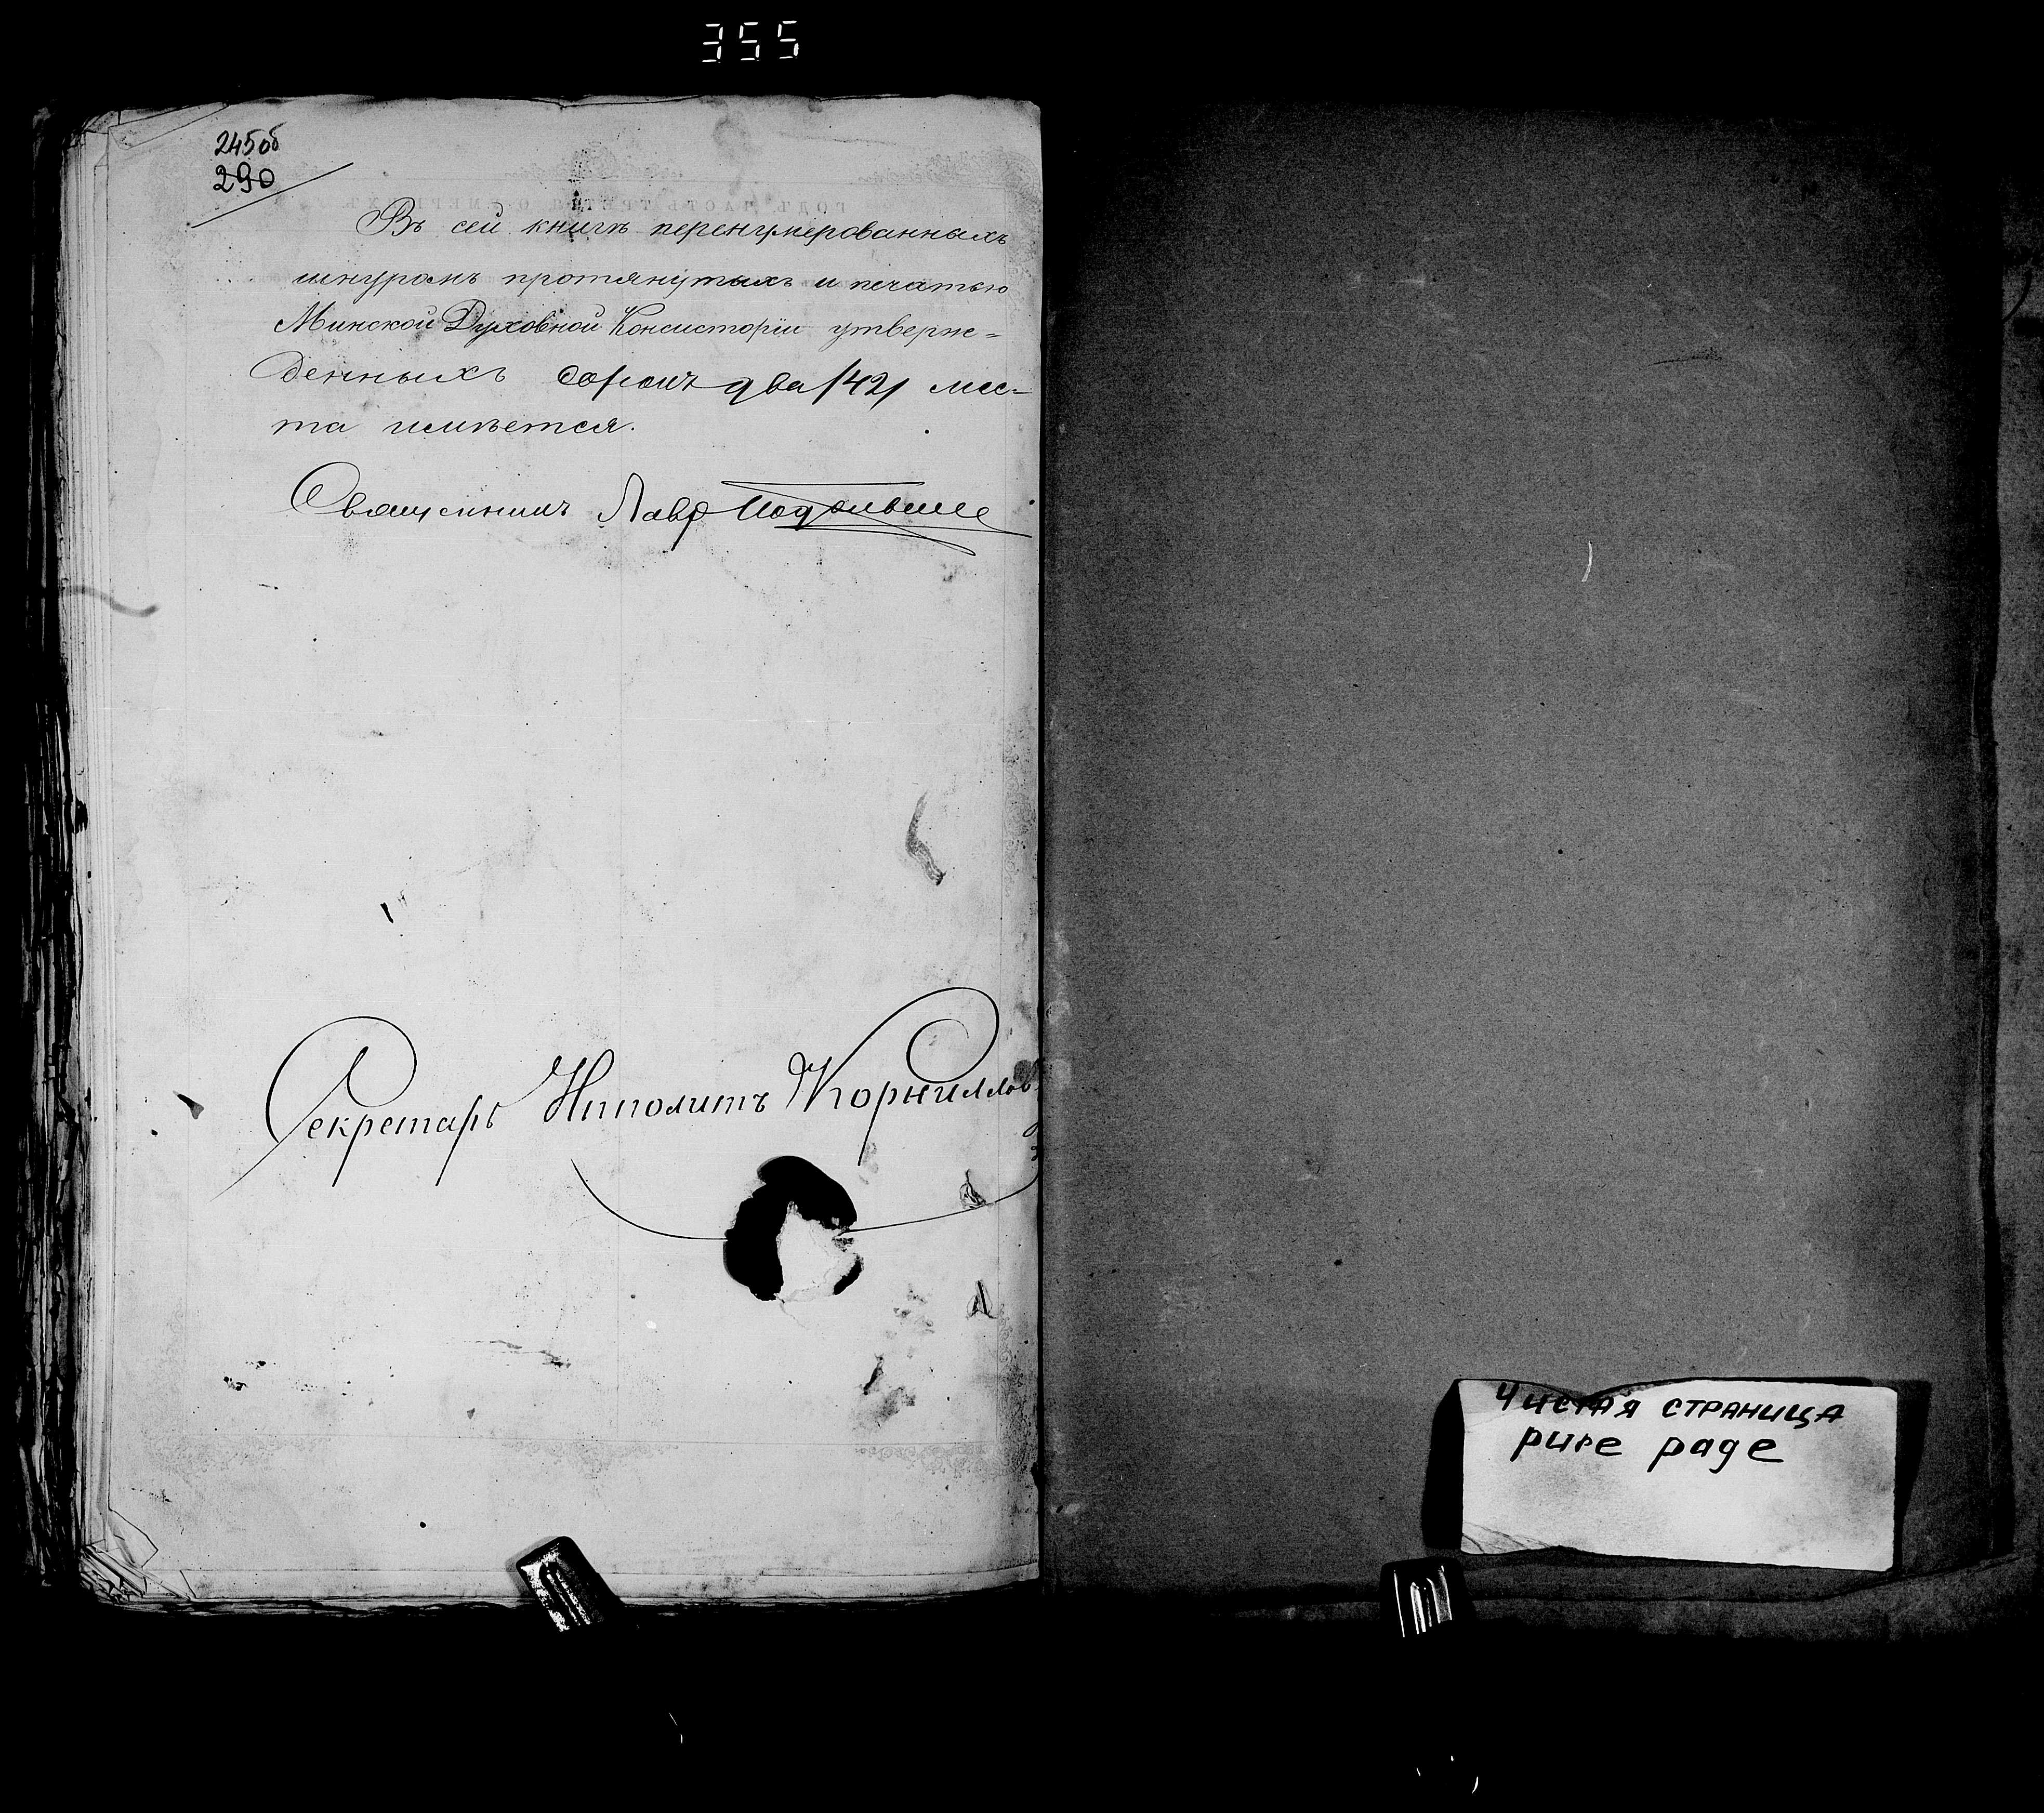 355
245об
290
Въ сей книгѣ перенумерованныхъ
шнуромъ протянутыхъ и печатью
Минской Духовной Консисторіи утверж=
денныхъ сорокъ два /42/ лис-
та имѣется.
Священникъ Лавр
Секретарь Ипполитъ Корниллов
Чистая страница
pure page